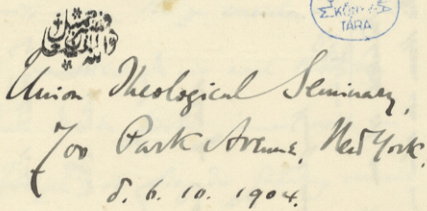 M. KÖNYVTÁRA
Union Theological Seminary,
700 Park Avenue, New York.
d. 6. 10. 1904.